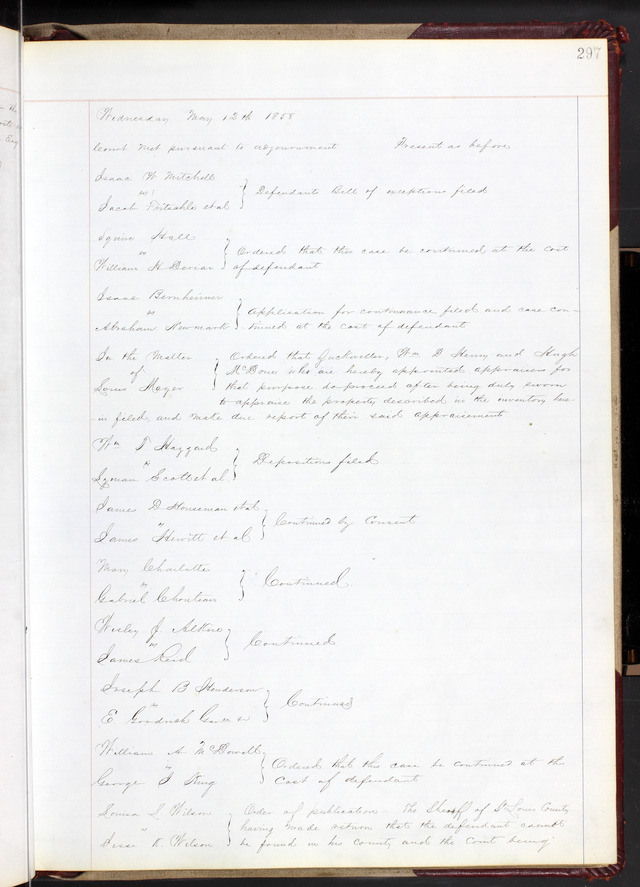 297
Wednesday May 12th 1858
Court met pursuant to adjournment Present as before
Isaac W Mitchell
vs
Jacob et al
Defendants Bill of exceptions filed
Squire Hall
vs
William H Dorian
Ordered that this case be continued at the cost
of defendant
Isaac Bernheimer
vs
Abraham Newmark
Application for continuance filed and case con-
tinued at the cost of defendant
In the Matter
of
Louis Mayer
Ordered that Wm D Henry and Hugh
McBone who are hereby appointed appraisers for
that purpose do proceed after being duly sworn
to appraise the property described in the inventory here-
in filed and make due report of their said appraisement
Wm T Haggard
vs
Lyman Scott et al
Depositions filed
James D Houseman et al
vs
James Hewitt et al
Continued by Consent
Mary Charlotte
vs
Gabriel Chouteau
Continued
Wesley J.
vs
James Reid
Continued
Joseph B Henderson
vs
E. Goodrich
Continued
William A. McDowell
vs
George J King
Ordered that this case be continued at the
Cost of defendant
Louisa L Wilson
vs
Jesse K. Wilson
Order of publication The Sheriff of St Louis County
having made return that the defendant cannot
be found in his County and the Court being